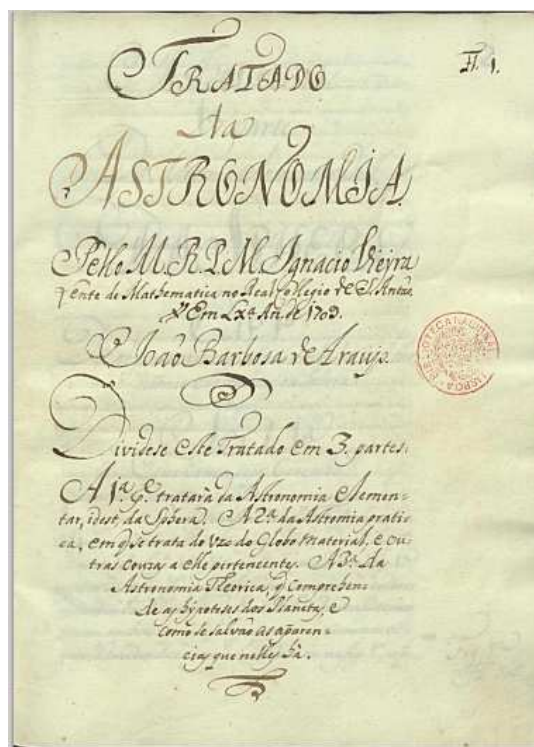 TRATADO
da
ASTRONOMIA.
Pello M. R. P. M. Ignacio Vieyra
Lente de Mathematica no Real Collegio de S. Antão.
Em Lxª An. de 1709.
João Barbosa de Araujo.
Dividese este Tratado em 3. partes.
A 1ª. q̃ tratarà da Astronomia Elemen-
tar, idest, da Sphera. A 2ª da Astromia prati-
ca, em q̃ se trata do Vzo do Globo material, e ou-
tras couzas a elle pertencentes. A 3ª. da
Astronomia Theorica, q̃ comprehen-
de as hypoteses dos Planeta, e
como se salvão as aparen-
cias que nelles hà.
BIBLIOTECA NACIONAL
LISBOA